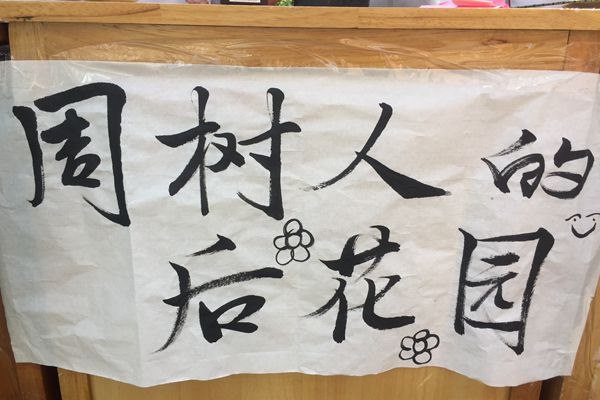 周树人的
后花园